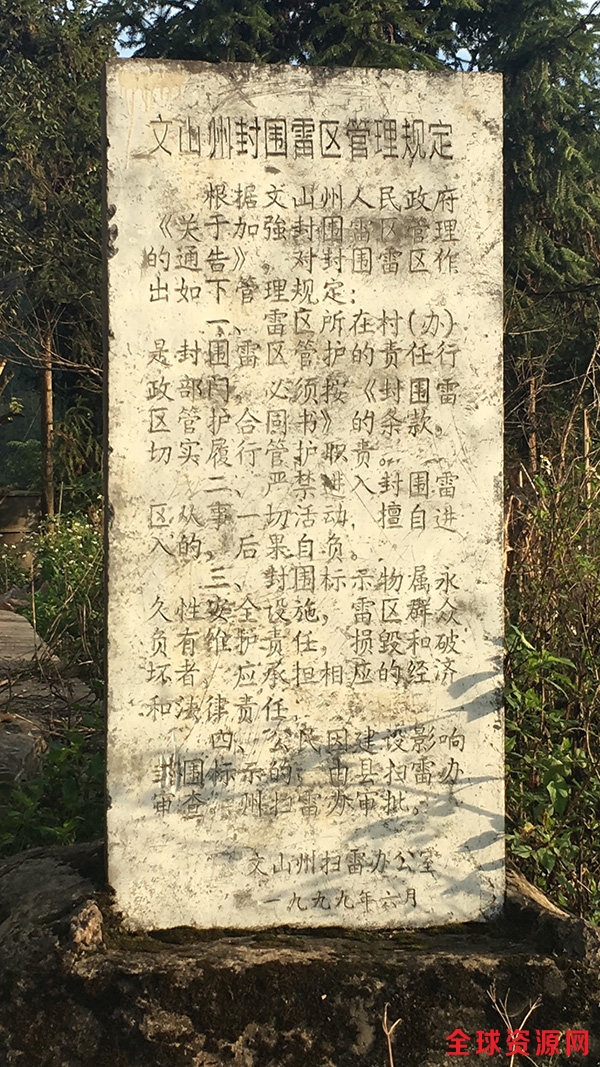 文山州封围雷区管理规定
根据文山州人民政府
《关于加强封围雷区管理
的通告》。对封围雷区作
出如下管理规定：
一、雷区所在村(办)
是封围雷区管护的责任行
政部门。必须按《封围雷
区管护合同书》的条款。
切实履行管护职责。
二、严禁进入封围雷
区从事一切活动，擅自进
入的，后果自负。
三、封围标示物属永
久性安全设施，雷区群众
负有维护责任，损毁和破
坏者，应承担相应的经济
和法律责任。
四、公民因建设影响
封围标示的；由县扫雷办
审查。州扫雷办审批。
文山州扫雷办公室
一九九九年六月
全球资源网